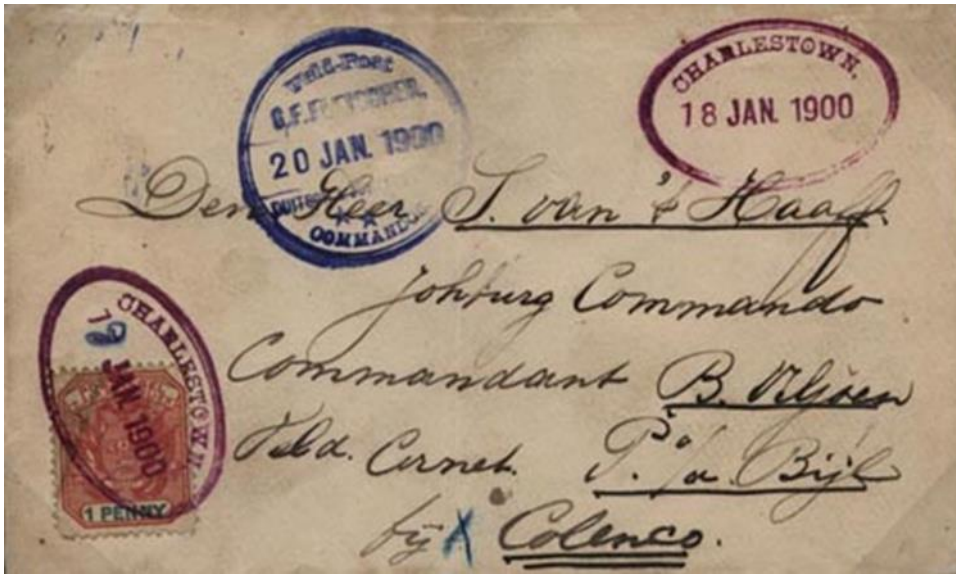 Veld-Post
C.F.
20 JAN. 1900
COMMANDO
CHARLESTOWN.
18 JAN. 1900
Den Heer S. van 't Haaff.
Johburg Commando
Commandant B. Viljoen
Veld. Cornet. P. v/d Bijl
bij X Colenco.
CHARLESTOWN.
JAN. 1900
1 PENNY